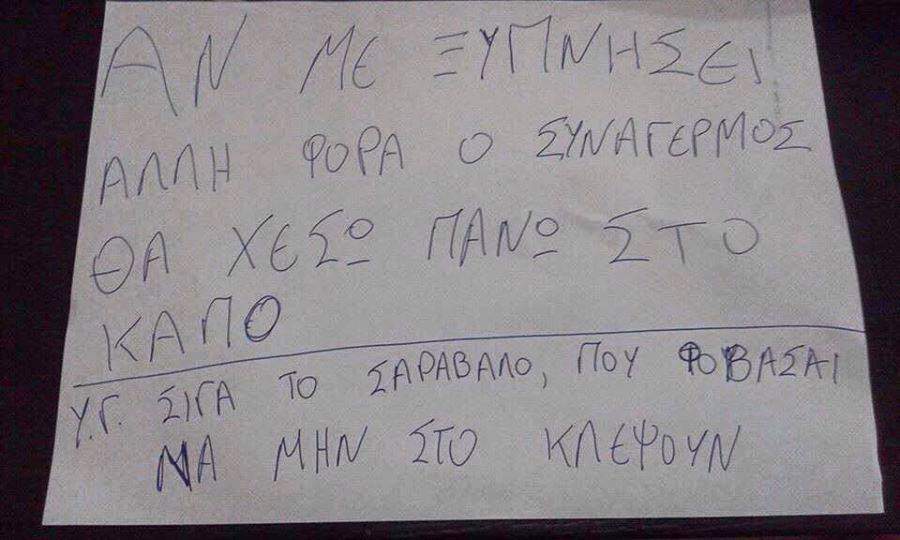 ΑΝ ΜΕ ΞΥΠΝΗΣΕΙ
ΑΛΛΗ ΦΟΡΑ Ο ΣΥΝΑΓΕΡΜΟΣ
ΘΑ ΧΕΣΩ ΠΑΝΩ ΣΤΟ
ΚΑΠΟ
Υ.Γ. ΣΙΓΑ ΤΟ ΣΑΡΑΒΑΛΟ, ΠΟΥ ΦΟΥΒΑΣΑΙ
ΝΑ ΜΗΝ ΣΤΟ ΚΛΕΨΟΥΝ